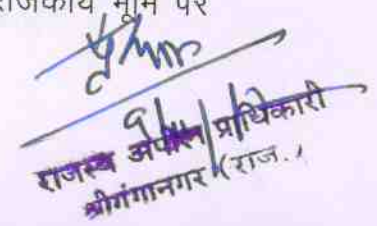 राजकीय भूमि पर
राजस्व अपील प्राधिकारी
श्रीगंगानगर (राज.)